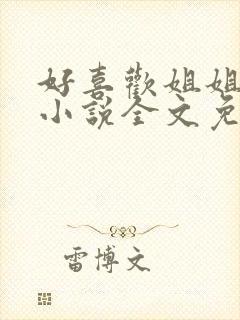 好喜歡姐姐
小說全文免
雷博文